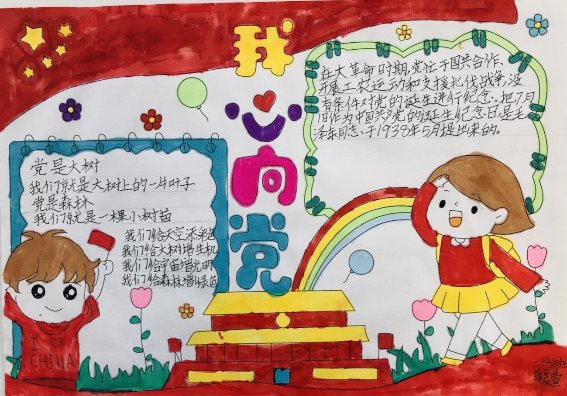 我心向党
在大革命时期,党忙于国共合作、
开展工农运动和支援北伐战争,没
有条件对党的诞生进行纪念。把7月
1日作为中国共产党的诞生纪念日,是毛
泽东同志,于1938年5月提出来的。
党是大树
我们就是大树上的一片叶子
党是森林
我们就是一棵小树苗
我们给天空添彩色
我们给大树增生机
我们给宇宙增光明
我们给森林增绿色
I
CHINA